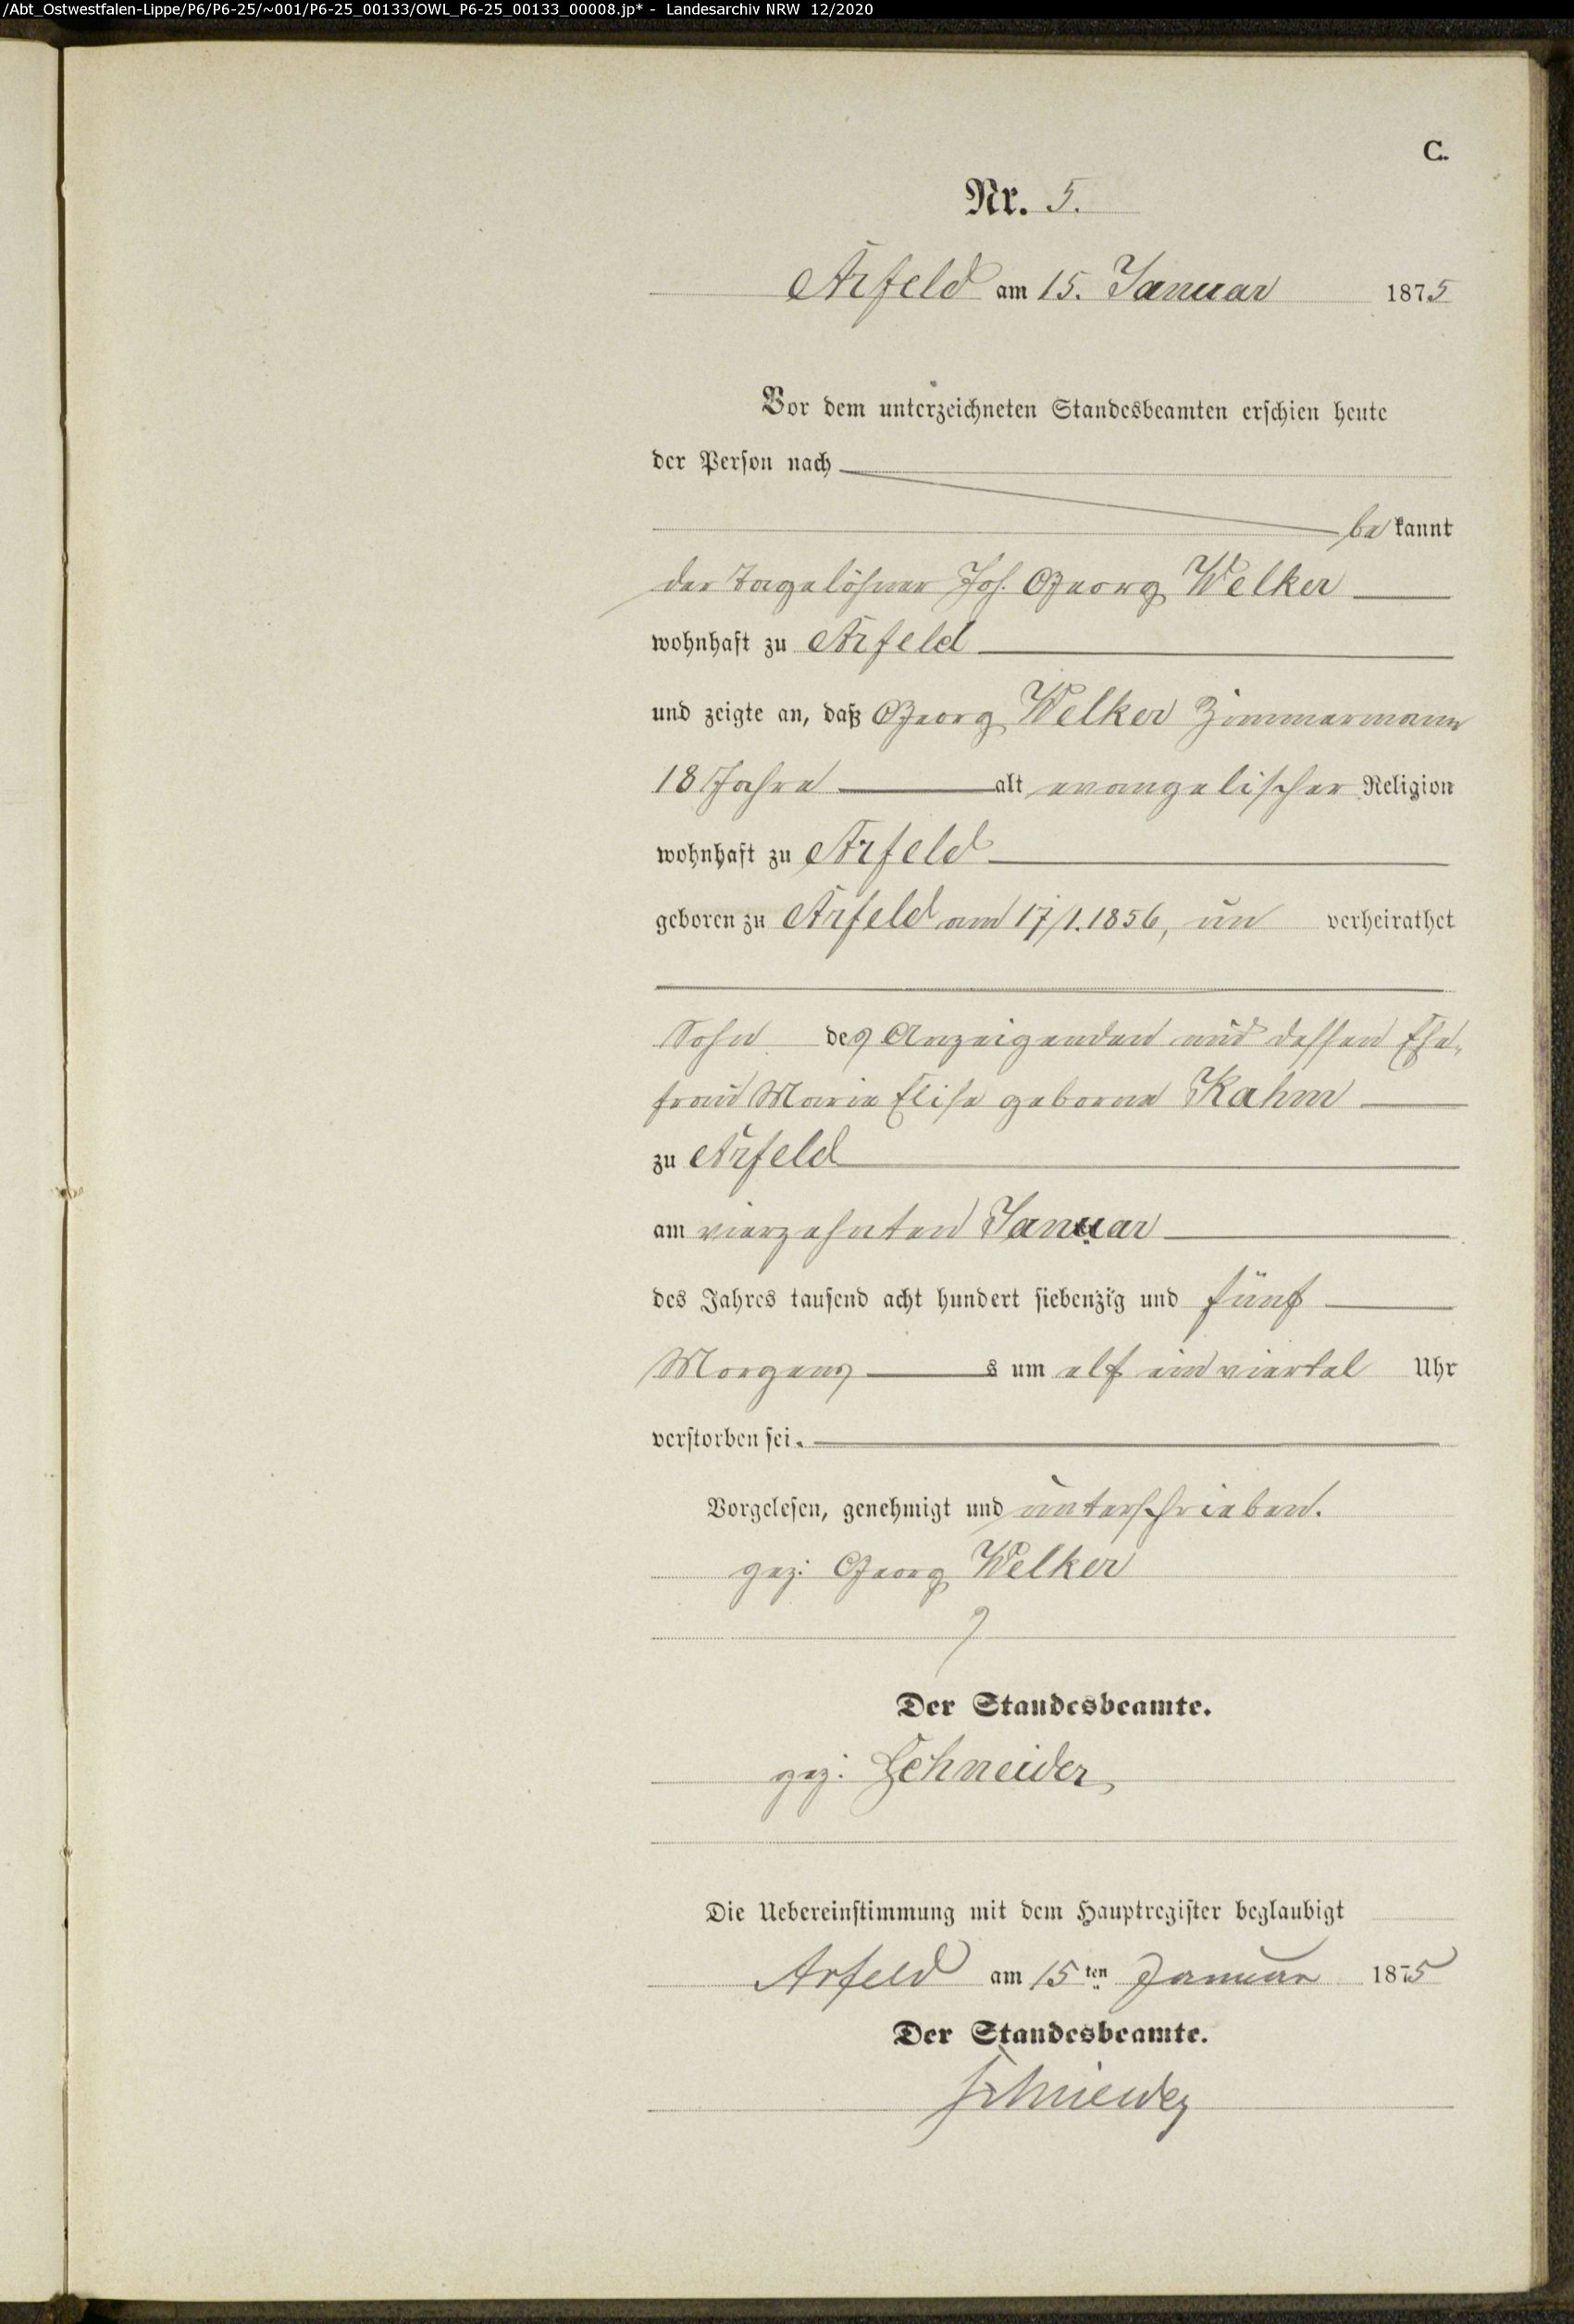 /Abt_Ostwestfalen-Lippe/P6/P6-25/~001/P6-25_00133/OWL_P6-25_00133_00008.jp* - Landesarchiv NRW 12/2020
C.
Nr. 5.
Arfeld am 15. Januar 1875
Vor dem unterzeichneten Standesbeamten erschien heute
der Person nach
be kannt
der Tagelöhner Joh. Georg Welker
wohnhaft zu Arfeld
und zeigte an, daß Georg Welker Zimmermann
18 Jahre alt evangelischer Religion
wohnhaft zu Arfeld
geboren zu Arfeld am 17/1. 1856, un verheirathet
Sohn des Anzeigenden und dessen Ehe-
frau Marie Elise geborne Kahm
zu Arfeld
am vierzehnten Januar
des Jahres tausend acht hundert siebenzig und fünf
Morgens s um elf ein viertel Uhr
verstorben sei.
Vorgelesen, genehmigt und unterschrieben.
gez: Georg Welker
Der Standesbeamte.
gez: Schneider
Die Uebereinstimmung mit dem Hauptregister beglaubigt
Arfeld am 15ten Januar 1875
Der Standesbeamte.
Schneider